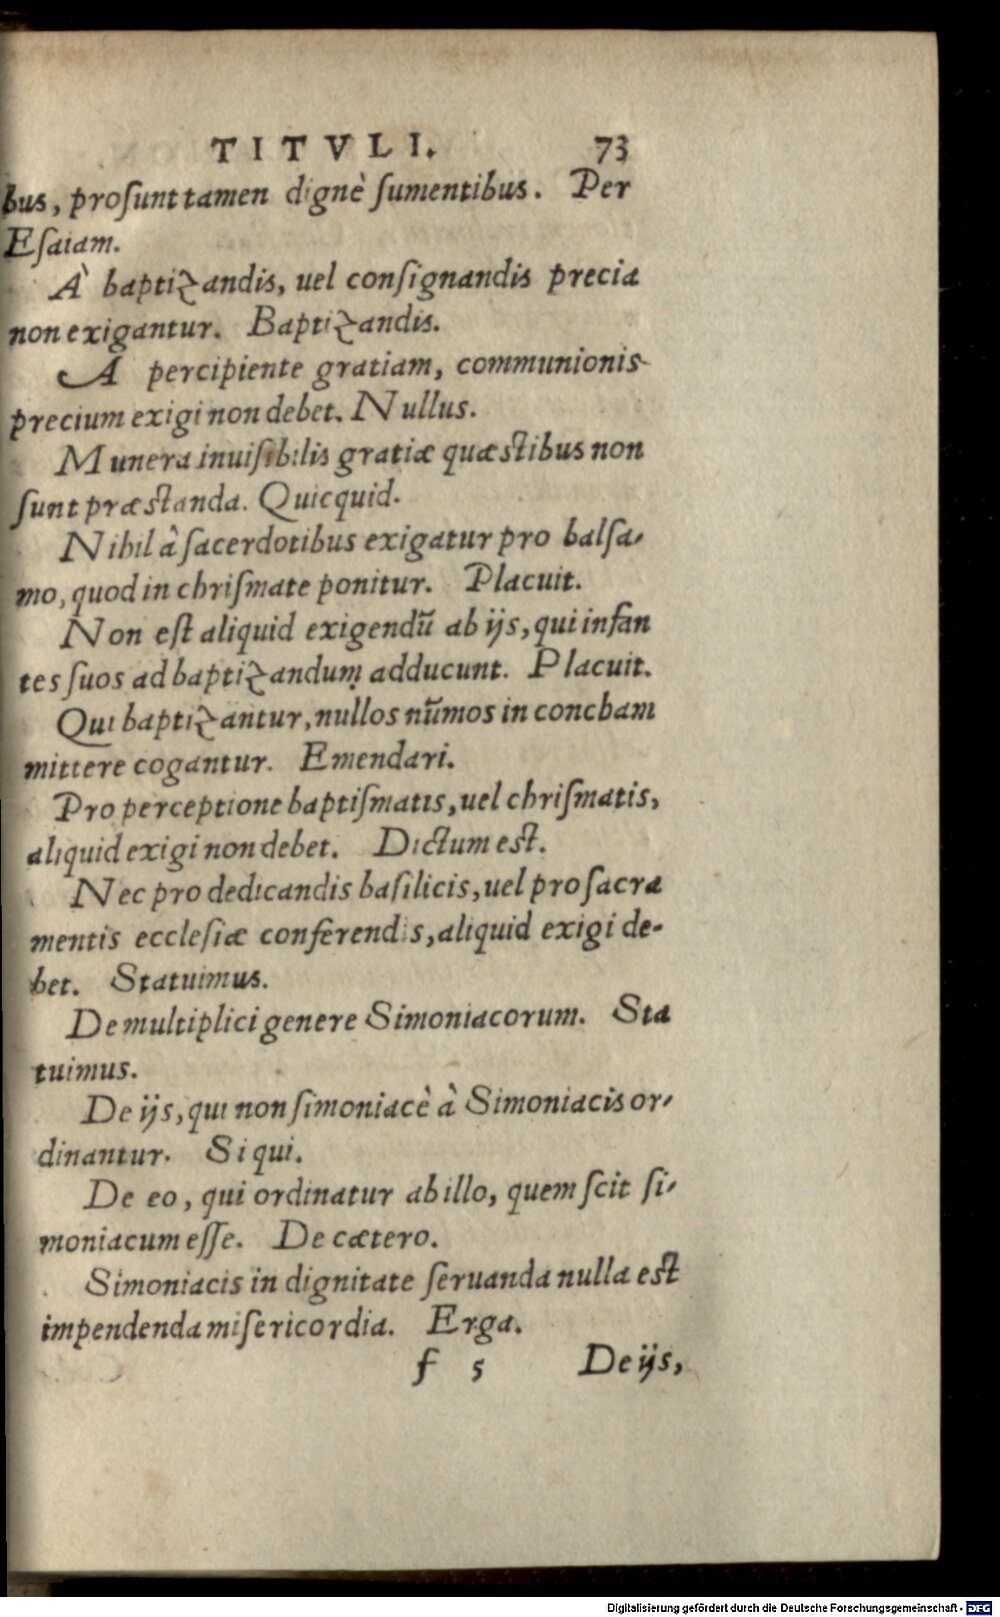 TITVLI. 73
bus, proſunt tamen dignè ſumentibus. Per
Eſaiam.
À baptizandis, uel conſignandis precia
non exigantur. Baptizandis.
A percipiente gratiam, communionis
precium exigi non debet. Nullus.
Munera inuiſibilis gratiæ quæſtibus non
ſunt præſtanda. Quicquid.
Nihil â ſacerdotibus exigatur pro balſa-
mo, quod in chriſmate ponitur. Placuit.
Non eſt aliquid exigendū ab ijs, qui infan
tes ſuos ad baptizandum adducunt. Placuit.
Qui baptizantur, nullos nūmos in concham
mittere cogantur. Emendari.
Pro perceptione baptiſmatis, uel chriſmatis,
aliquid exigi non debet. Dictum eſt.
Nec pro dedicandis baſilicis, uel pro ſacra
mentis eccleſiæ conferendis, aliquid exigi de-
bet. Statuimus.
De multiplici genere Simoniacorum. Sta
tuimus.
De ijs, qui non ſimoniacè à Simoniacis or-
dinantur. Si qui.
De eo, qui ordinatur ab illo, quem ſcit ſi-
moniacum eſſe. De cætero.
Simoniacis in dignitate ſeruanda nulla eſt
impendenda miſericordia. Erga.
f 5 De ijs,
Digitalisierung gefördert durch die Deutsche Forschungsgemeinschaft - DFG